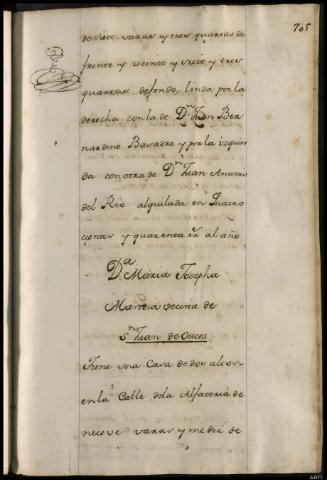 705
de siete varas y tres quartas de
frente y veinte y siete y tres
quartas de fondo, linda por la
derecha con la de Dn. Juan Ber
nardino Basadre y por la izquier
da con otra de Dn. Juan Antonio
del Rio alquilada en Quatro
cientos y quarenta rr. al año.
Da. Maria Josepha
Mandia vecina de
Sn. Juan de Ouces
Tiene una Casa de dos altos
en la Calle de la Alfateria de
nueve varas y media de